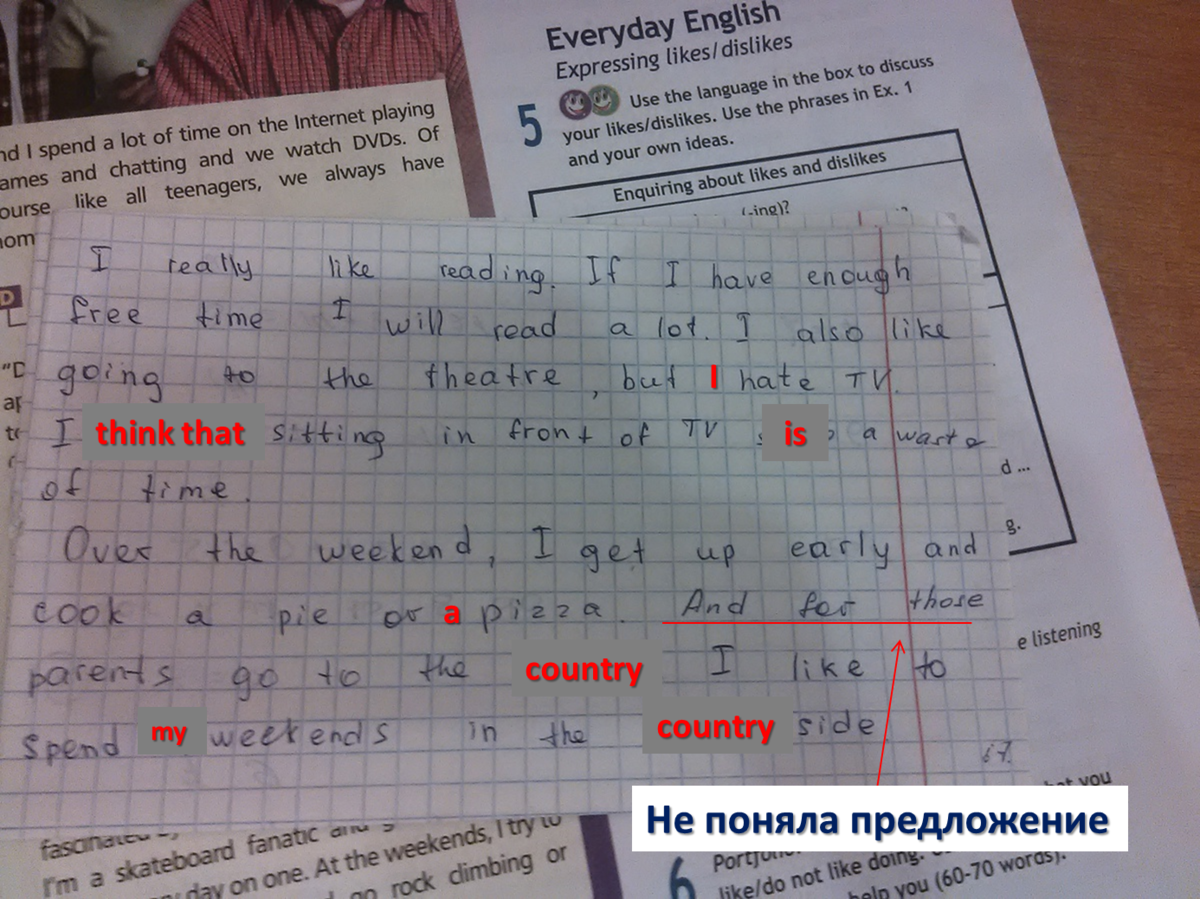 nd I spend a lot of time on the Internet playing
ames and chatting and we watch DVDs. Of
ourse like all teenagers, we always have
hom
Everyday English
Expressing likes/dislikes
5 Use the language in the box to discuss
your likes/dislikes. Use the phrases in Ex. 1
and your own ideas.
Enquiring about likes and dislikes
(-ing)?
D
"D
ap
I really like reading. If I have enough
free time I will read a lot. I also like
going to the theatre, but I hate TV.
I think that sitting in front of TV is a waste
of time.
Over the weekend, I get up early and
cook a pie or a pizza. And for those
parents go to the country I like to
spend my weekends in the country side
67.
d ...
g.
e listening
Не поняла предложение
hat you
I'm a skateboard fanatic and
day on one. At the weekends, I try to
go rock climbing or
6
like/do not like doing.
help you (60-70 words).